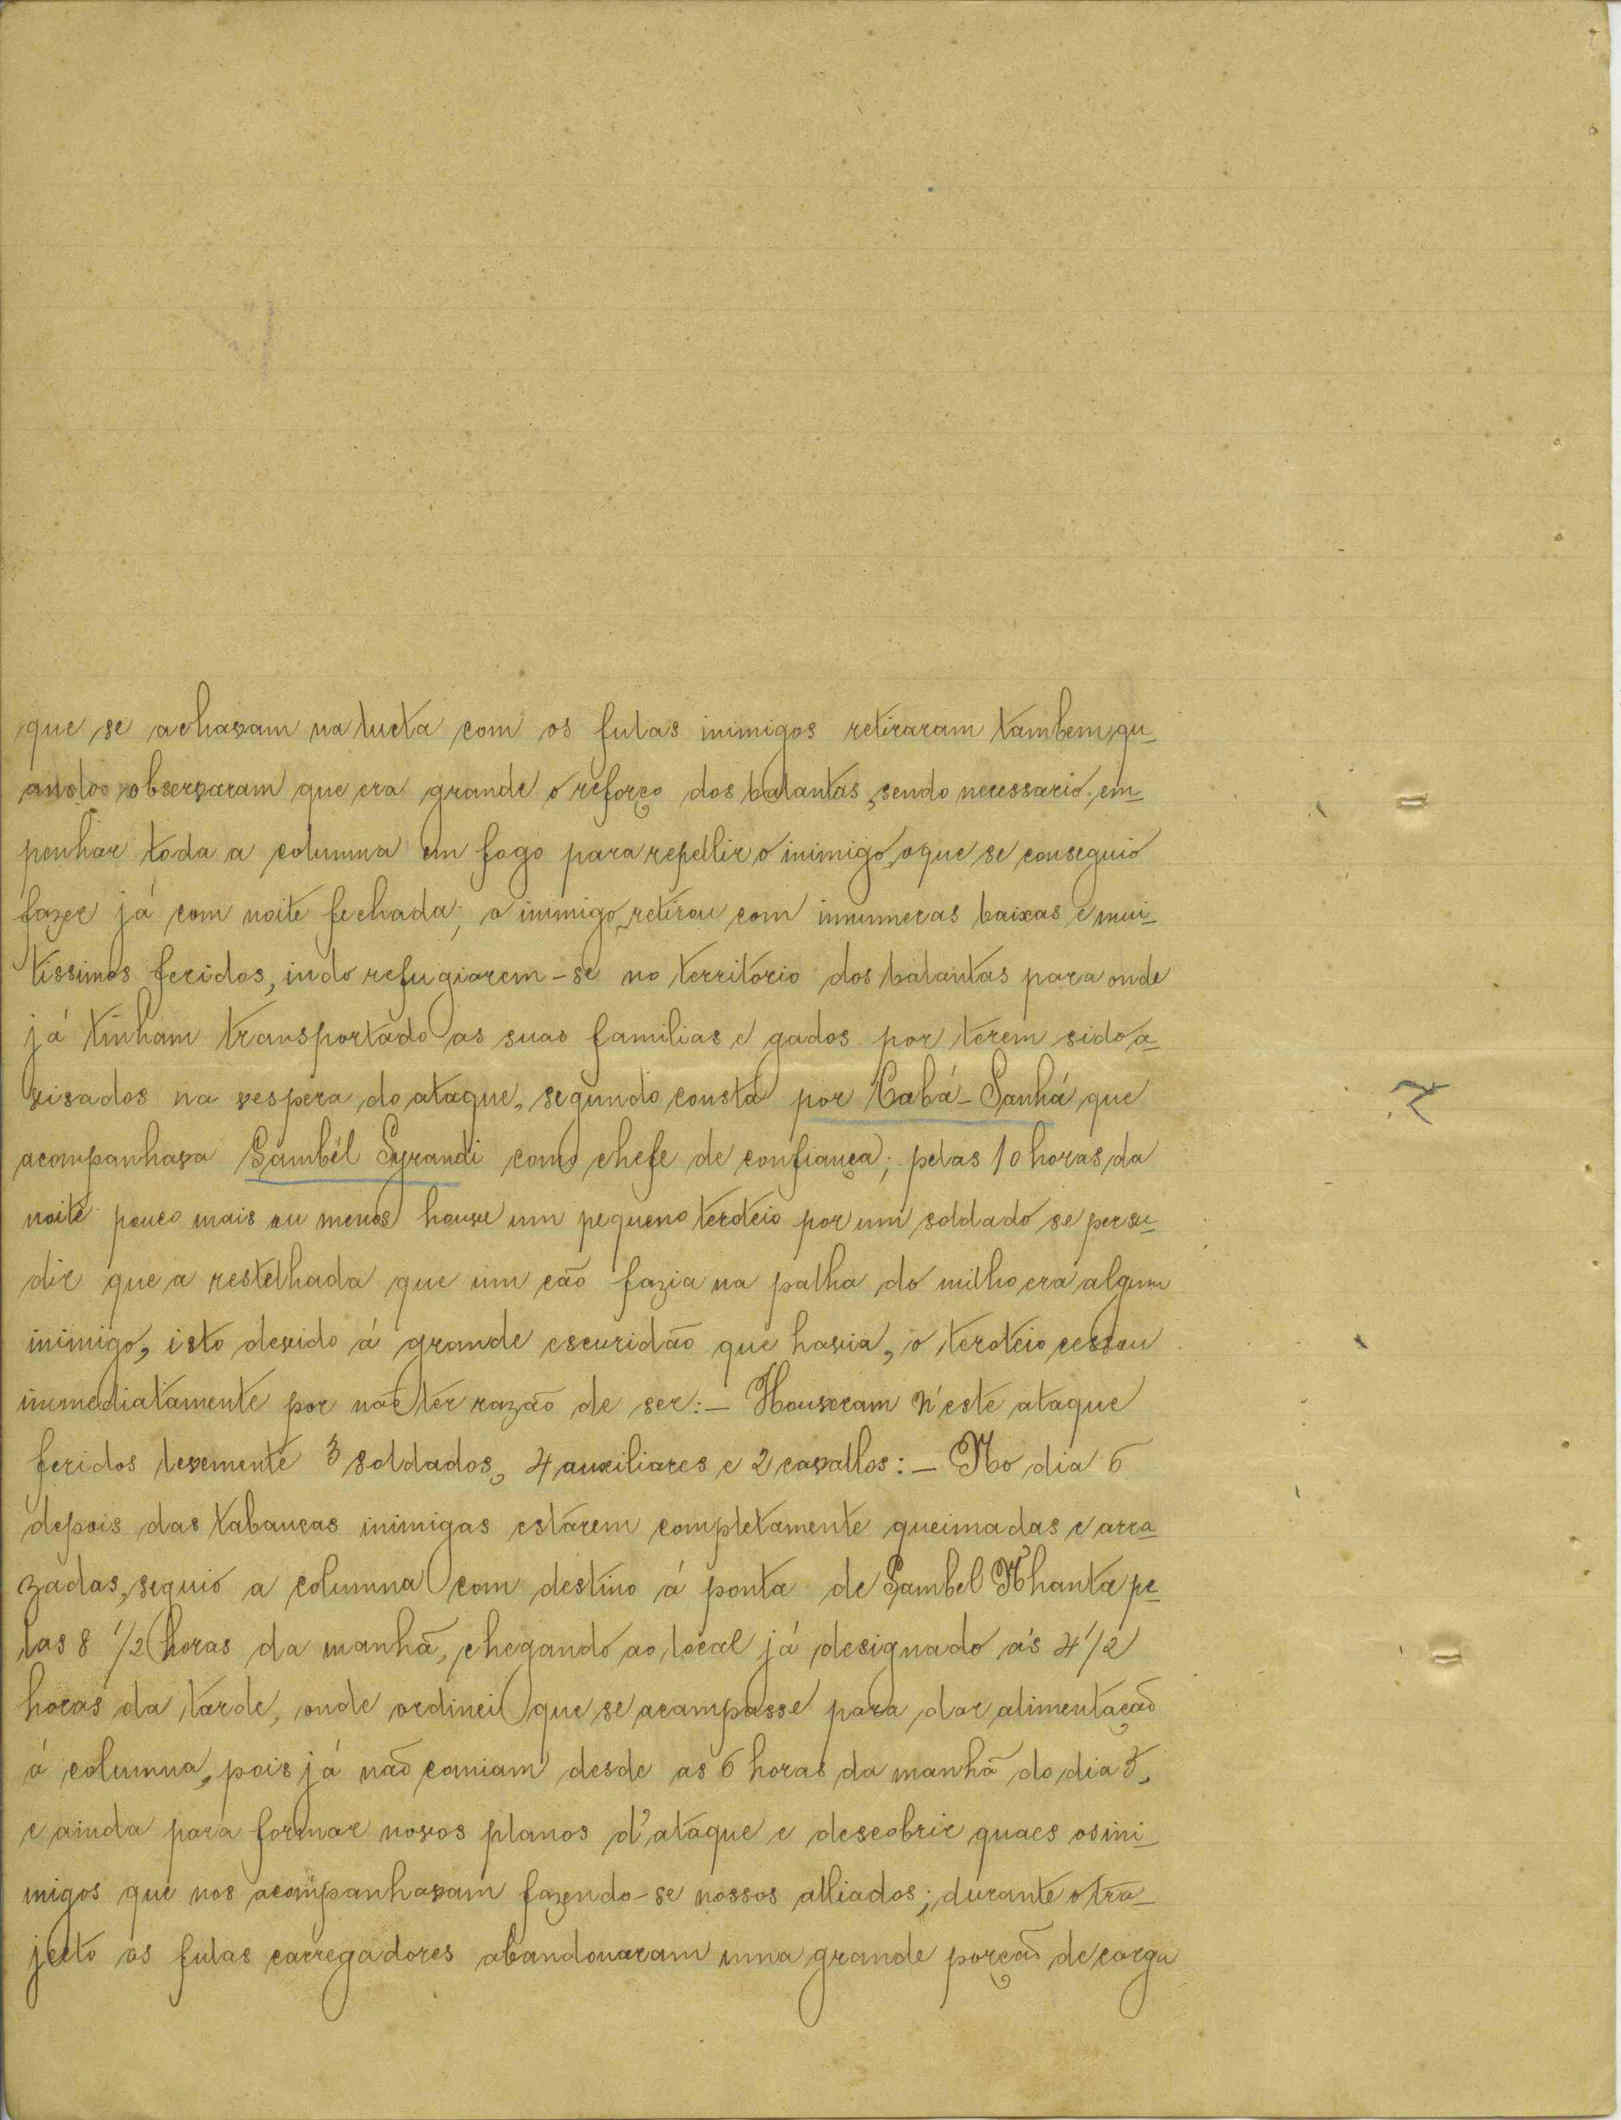 que se achavam na lucta com os fulas inimigos retiraram tambem, qu-
ando observaram que era grande o reforço dos balantas, sendo necessario em-
penhar toda a columna em fogo para repellir o inimigo, o que se conseguio
fazer já com noite fechada; o inimigo retirou com innumeras baixas e mui-
tissimos feridos, indo refugiarem-se no territorio dos balantas para onde
já tinham transportado as suas familias e gados por terem sido a-
visados na vespera do ataque, segundo consta por Cabá-Sanhá que
acompanhava Sambél como chefe de confiança; pelas 10 horas da
noite pouco mais ou menos houve um pequeno teroteio por um soldado se persu-
dir que a restelhada que um cão fazia na palha do milho era algum
inimigo, isto devido á grande escuridão que havia, o teroteio cessou
immediatamente por não ter razão de ser:- Houveram n'este ataque
feridos levemente 3 soldados, 4 auxiliares e 2 cavallos:- No dia 6
depois das tabancas inimigas estarem completamente queimadas e arra-
zadas, seguio a columna com destino á ponta de Sambel Nhanta pe-
las 8 1/2 horas da manhã, chegando ao local já designado ás 4 1/2
horas da tarde, onde ordinei que se acampasse para dar alimentação
á columna, pois já não comiam desde as 6 horas da manhã do dia 5,
e ainda para formar novos planos d'ataque e descobrir quaes os ini-
migos que nos acompanhavam fazendo-se nossos alliados; durante o tra-
jecto os fulas carregadores abandonaram uma grande porção de carga